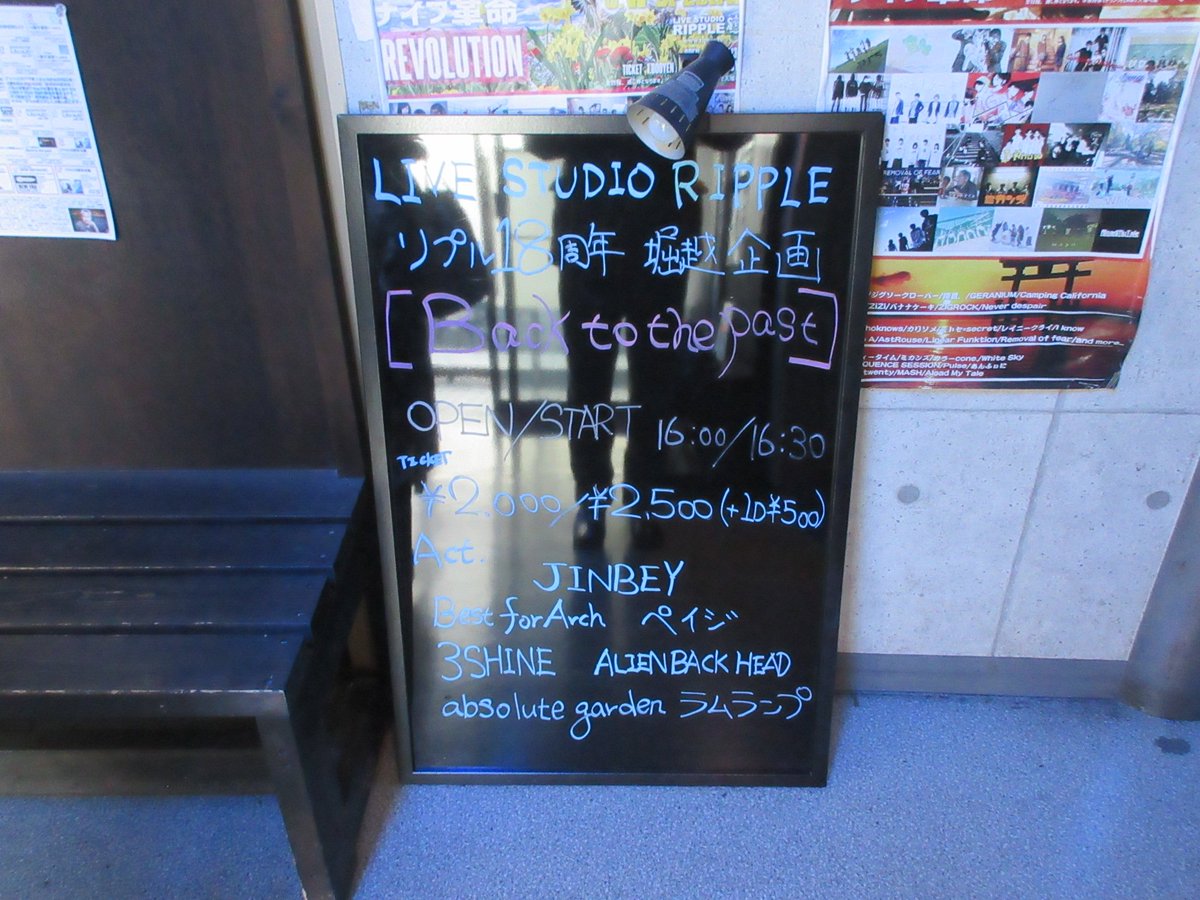 ナイフ革命
REVOLUTION
LIVE STUDIO
RIPPLE
TICKET
LIVE STUDIO RIPPLE
リプル18周年 堀越企画
[Back to the past]
OPEN/START 16:00/16:30
TICKET
¥2.000/¥2,500(+1D¥500)
Act.
JINBEY
Best for Arch ペイジ
3SHINE ALIEN BACK HEAD
absolute garden ラムランプ
REMOVAL OF FEAR
ジグソークローバー/ /GERANIUM/Camping California
ZIZI/バナナケーキ/ZIGROCK/Never despair
hoknows/カリソメ/ /レイニークライ/I know
A/AstRouse/Linear Funktion/Removal of fear/and more...
ィータイム/ミカンズ/カラーcone./White Sky
QUENCE SESSION/Pulse/あんふぁに
twenty/MASH/Aload My Tale